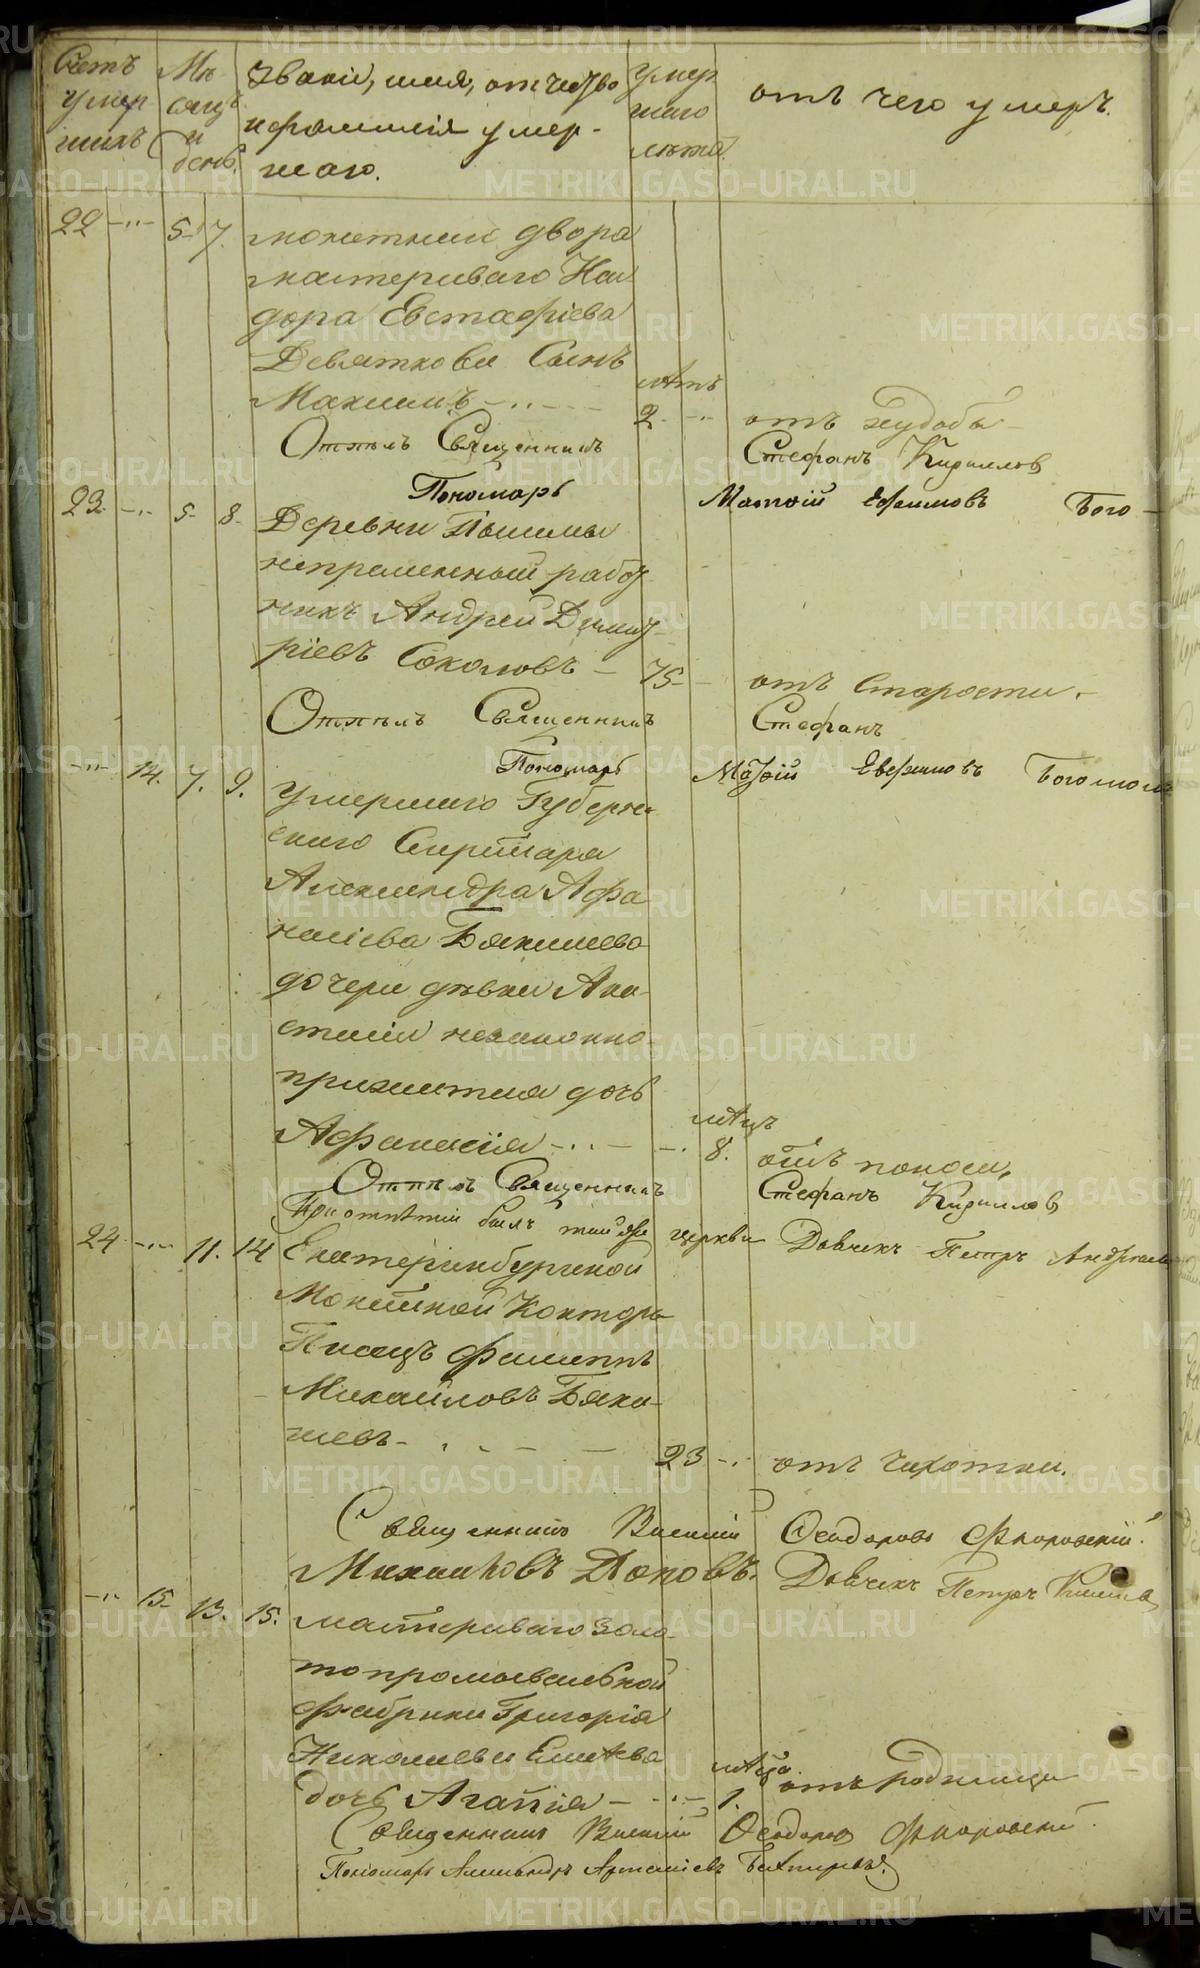 Счетъ умершихъ
Мѣсяцъ и день.
Званіе, имя, отчество
и фамилія умер-
шаго.
Умершаго лѣта.
отъ чего умеръ.
22 5 7. монетнаго двора
мастероваго Кан
дора Евстафіева
Девяткова Сынъ
лѣтъ
Максимъ 2. отъ худобы
Отпѣлъ Священникъ Стефанъ Кириллов
Пономарь Матѳій Ефимовъ Бого-
23. 5. 8. Деревни Пышмы
непременный работ
никъ Андрей Димит-
ріевъ Соколовъ 75 отъ Старости.
Отпѣлъ Священникъ Стефанъ
Пономарь Матѳій Евфимовъ Богомол
14. 7. 9. Умершаго Губернс
скаго Секретаря
Александра Афа
насіева Бякишева
дочери девки Ана-
стасіи незаконно-
прижитая дочь
мѣсцъ
Афанасія 8. отъ поноса,
Отпѣлъ Священникъ Стефанъ Кириллов
При отпѣтіи былъ той же церкви Дьячекъ Петръ
24 11. 14 Екатеринбургской
Монетной Конторы
Писецъ Филиппъ
Михайловъ Бяки-
шевъ 23 отъ чихотки.
Священникъ Василій Ѳеодоровъ Флоровскій.
Михаиловъ Поповъ. Дьячекъ Петръ
15 13. 15. мастероваго Золо-
топромывальной
Фабрики Григорія
Николаева
мѣсца.
дочь Агапія 1. отъ родимца
Священникъ Василій Ѳеодоров Флоровскій.
Пономарь Александръ
METRIKI.GASO-URAL.RU